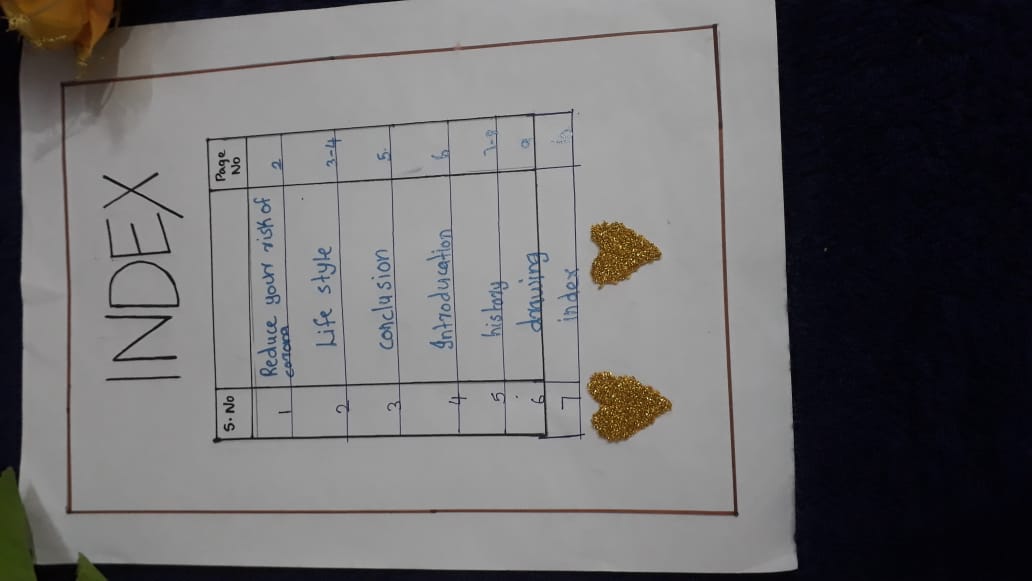 INDEX
S. No Page No
1 Reduce your risk of corona 2
2 Life style 3-4
3 conclusion 5
4 Introducation 6
5 history 7-8
6 drawing 9
7 index